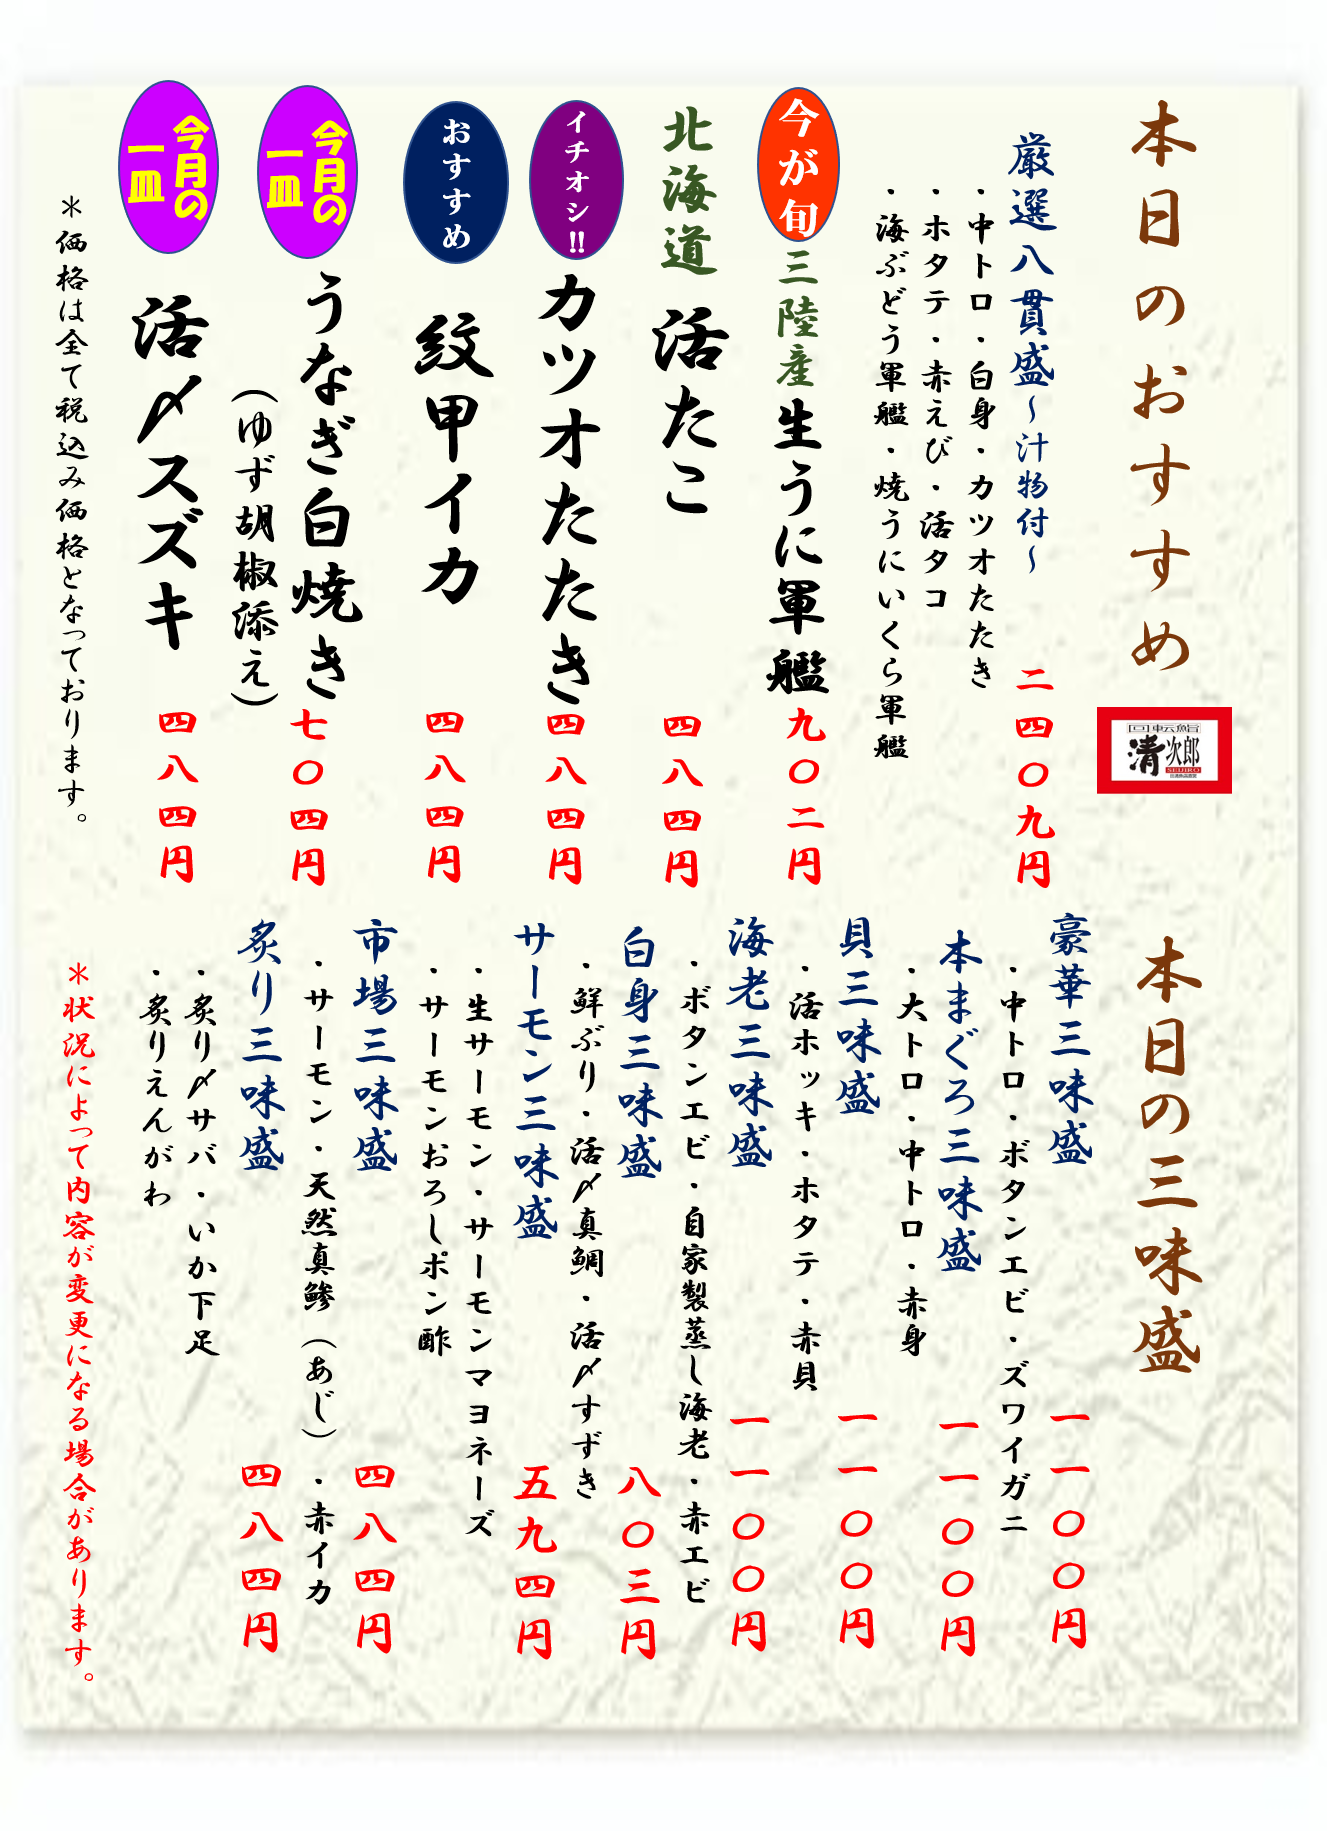 本日のおすすめ
回転鮨
清次郎
SEIJIRO
厳選八貫盛~汁物付~
二四〇九円
・中トロ・白身・カツオたたき
・ホタテ・赤えび・活タコ
・海ぶどう軍艦・焼うにいくら軍艦
今が旬
三陸産生うに軍艦
九〇二円
北海道 活たこ
四八四円
イチオシ!!
カツオたたき
四八四円
おすすめ
紋甲イカ
四八四円
今月の
一皿
うなぎ白焼き
(ゆず胡椒添え)
七〇四円
今月の
一皿
活〆スズキ
四八四円
*価格は全て税込み価格となっております。
本日の三味盛
豪華三味盛
一一〇〇円
・中トロ・ボタンエビ・ズワイガニ
本まぐろ三味盛
一一〇〇円
・大トロ・中トロ・赤身
貝三味盛
一一〇〇円
・活ホッキ・ホタテ・赤貝
海老三味盛
一一〇〇円
・ボタンエビ・自家製蒸し海老・赤エビ
白身三味盛
八〇三円
・鮮ぶり・活〆真鯛・活〆すずき
サーモン三味盛
五九四円
・生サーモン・サーモンマヨネーズ
・サーモンおろしポン酢
市場三味盛
四八四円
・サーモン・天然真鯵(あじ)・赤イカ
炙り三味盛
四八四円
・炙り〆サバ・いか下足
・炙りえんがわ
*状況によって内容が変更になる場合があります。